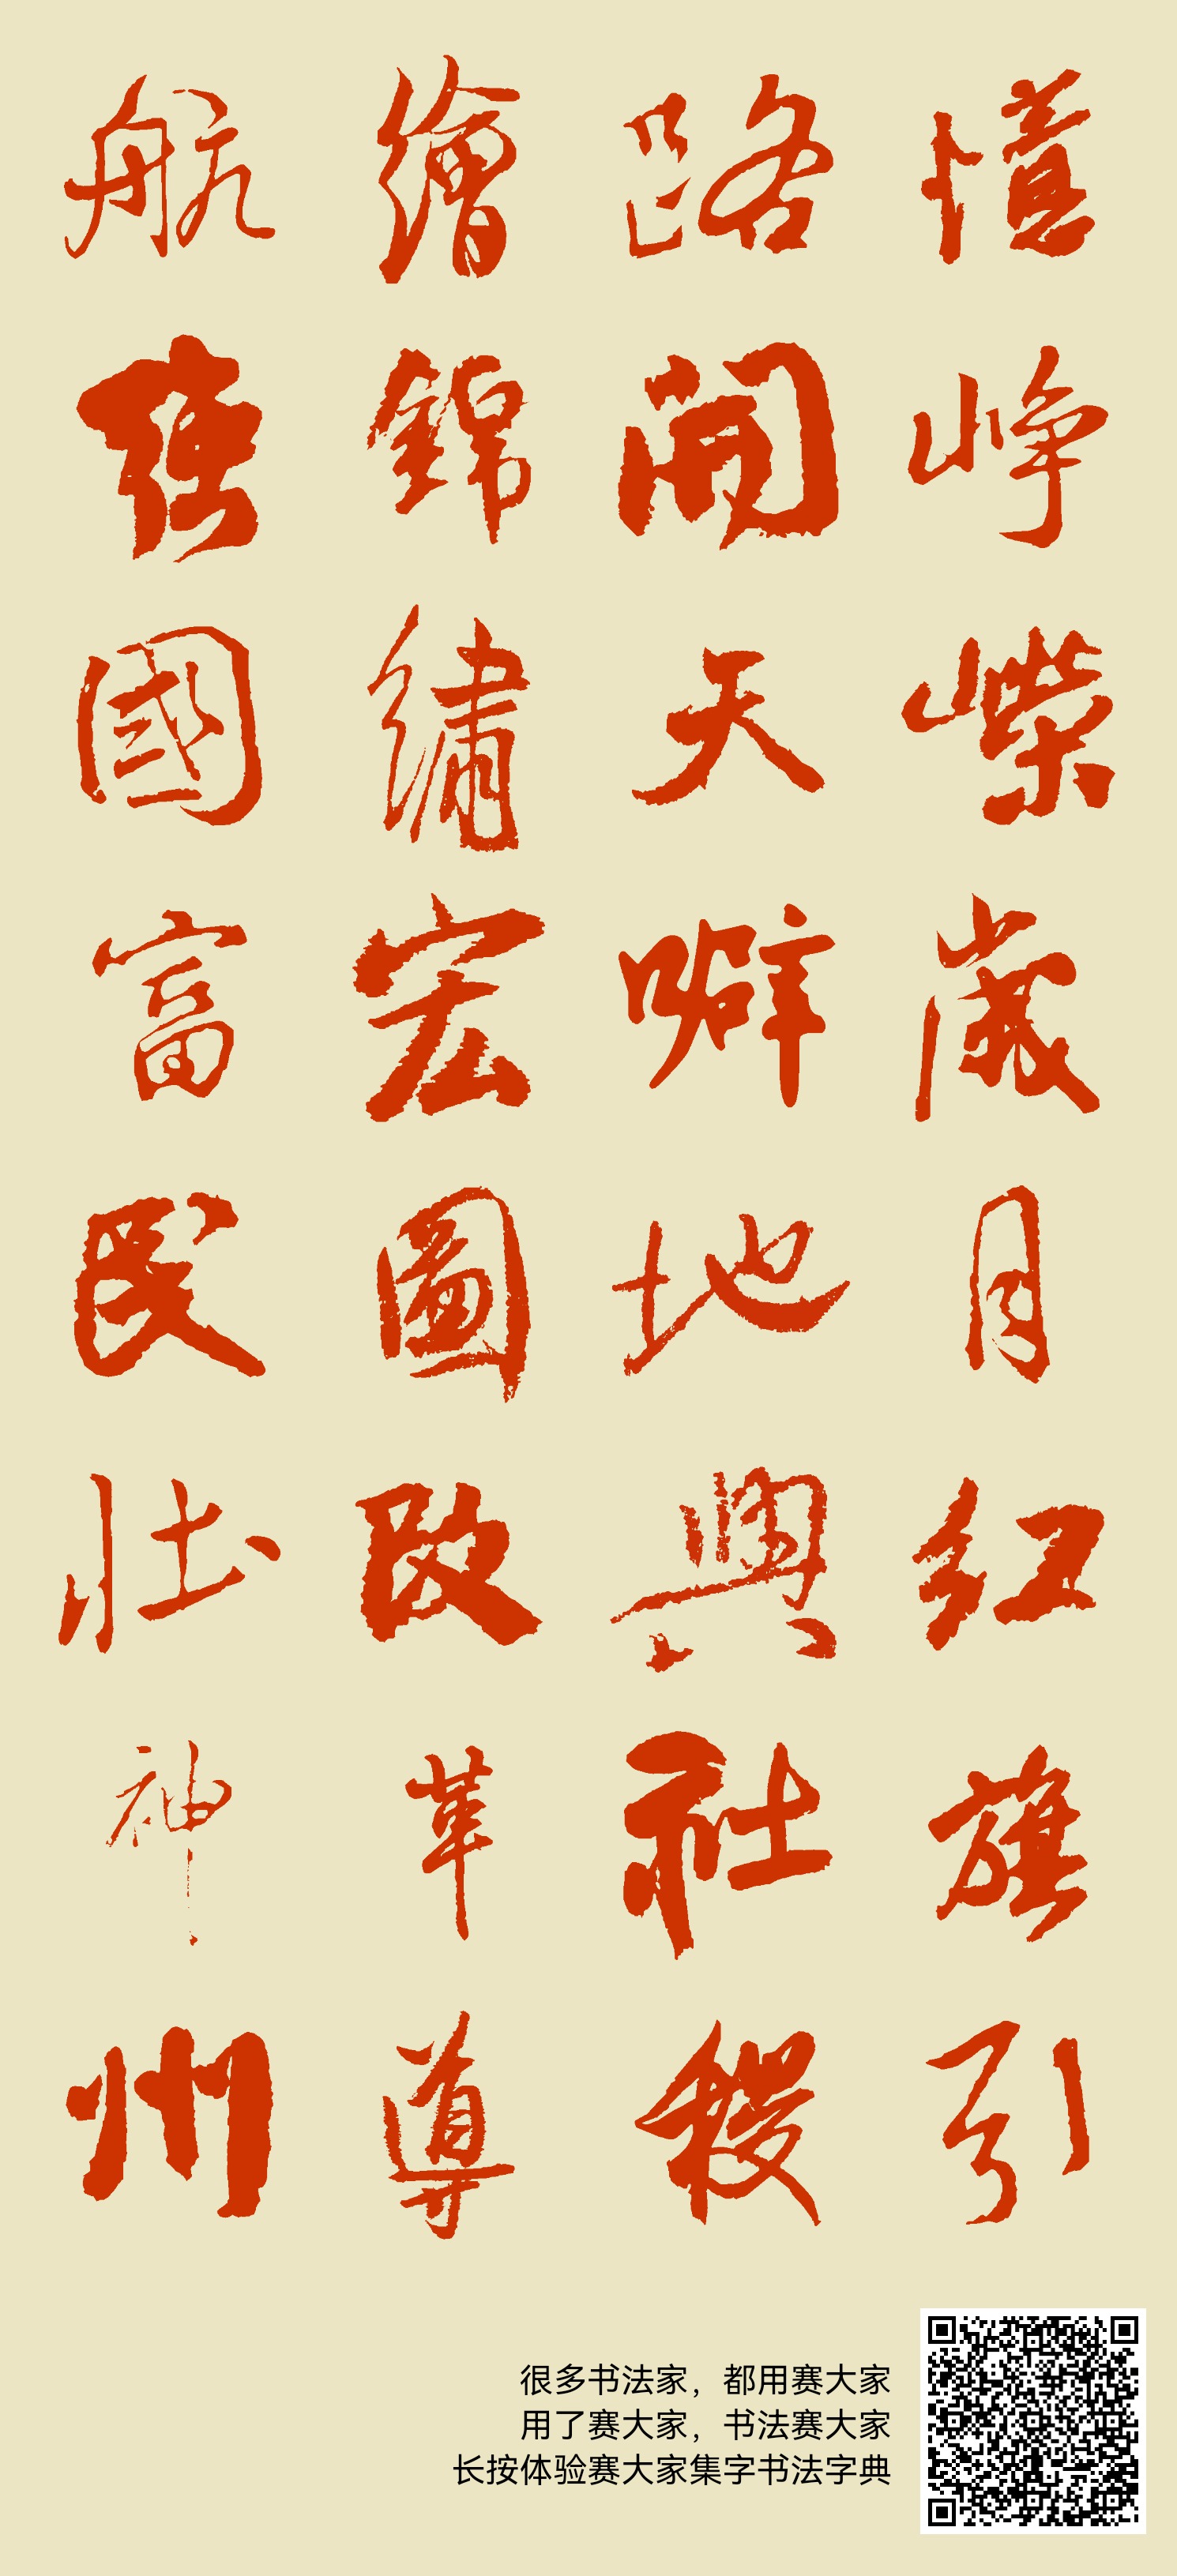 憶崢嶸歲月紅旗引
路開天噼地興社稷
繪錦繡宏圖改革導
航强國富民壯神州
很多书法家，都用赛大家
用了赛大家，书法赛大家
长按体验赛大家集字书法字典